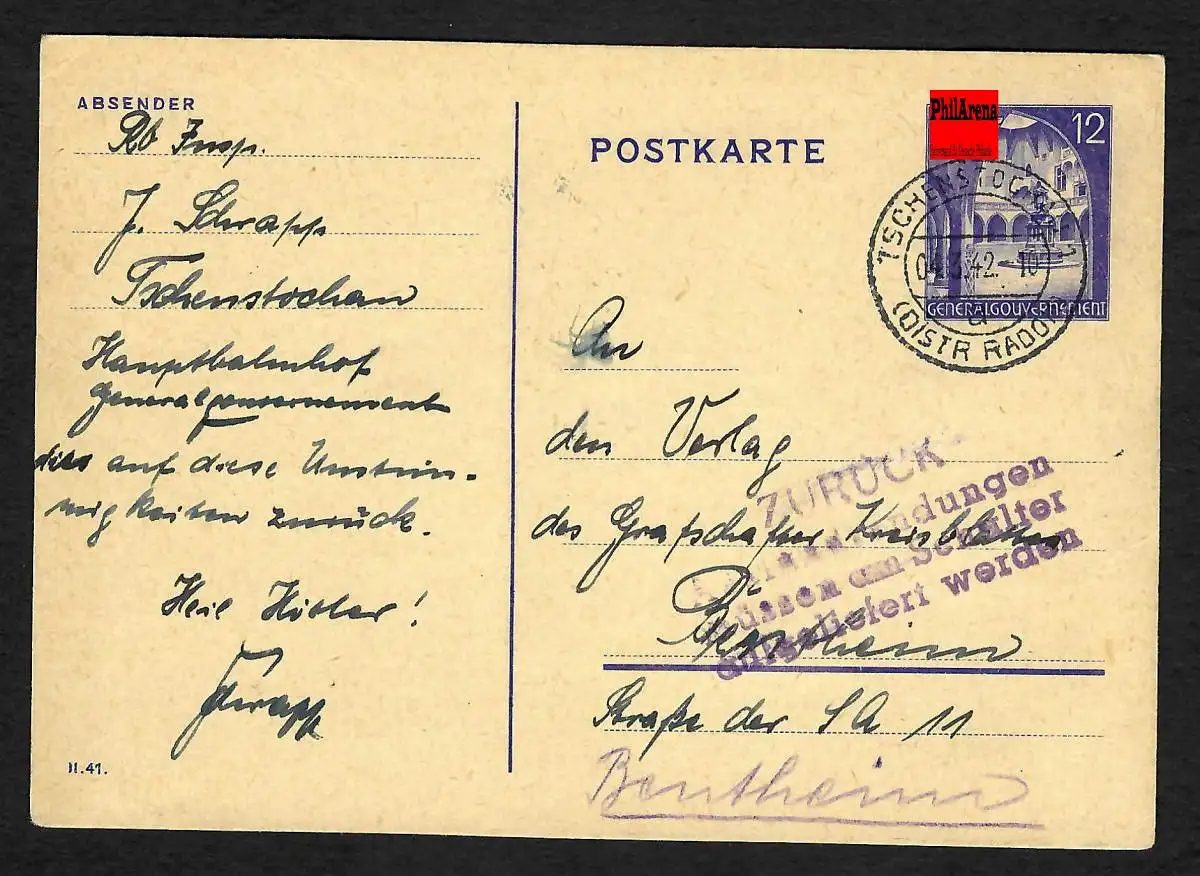 ABSENDER
RB Insp.
J. Schrapp
Tschenstochau
Hauptbahnhof
Generalgouvernement
dies auf diese Unstim-
migkeiten zurück.
Heil Hitler!
Schrapp
II.41.
POSTKARTE
PhilArena
12
TSCHENSTOCHAU 1
04.3.42.-10
a
(DISTR RADOM)
GENERALGOUVERNEMENT
An
den Verlag
des Grafschafter Kreisblattes
Bentheim
Straße der SA 11
Bentheim
ZURÜCK
müssen am Schalter
aufgeliefert werden